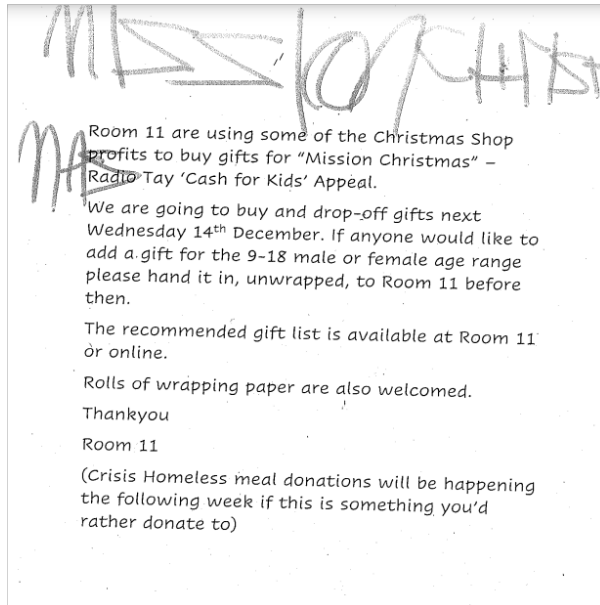 MISSION
MAS
Room 11 are using some of the Christmas Shop
profits to buy gifts for “Mission Christmas” –
Radio Tay ‘Cash for Kids’ Appeal.
We are going to buy and drop-off gifts next
Wednesday 14th December. If anyone would like to
add a gift for the 9-18 male or female age range
please hand it in, unwrapped, to Room 11 before
then.
The recommended gift list is available at Room 11
or online.
Rolls of wrapping paper are also welcomed.
Thankyou
Room 11
(Crisis Homeless meal donations will be happening
the following week if this is something you’d
rather donate to)